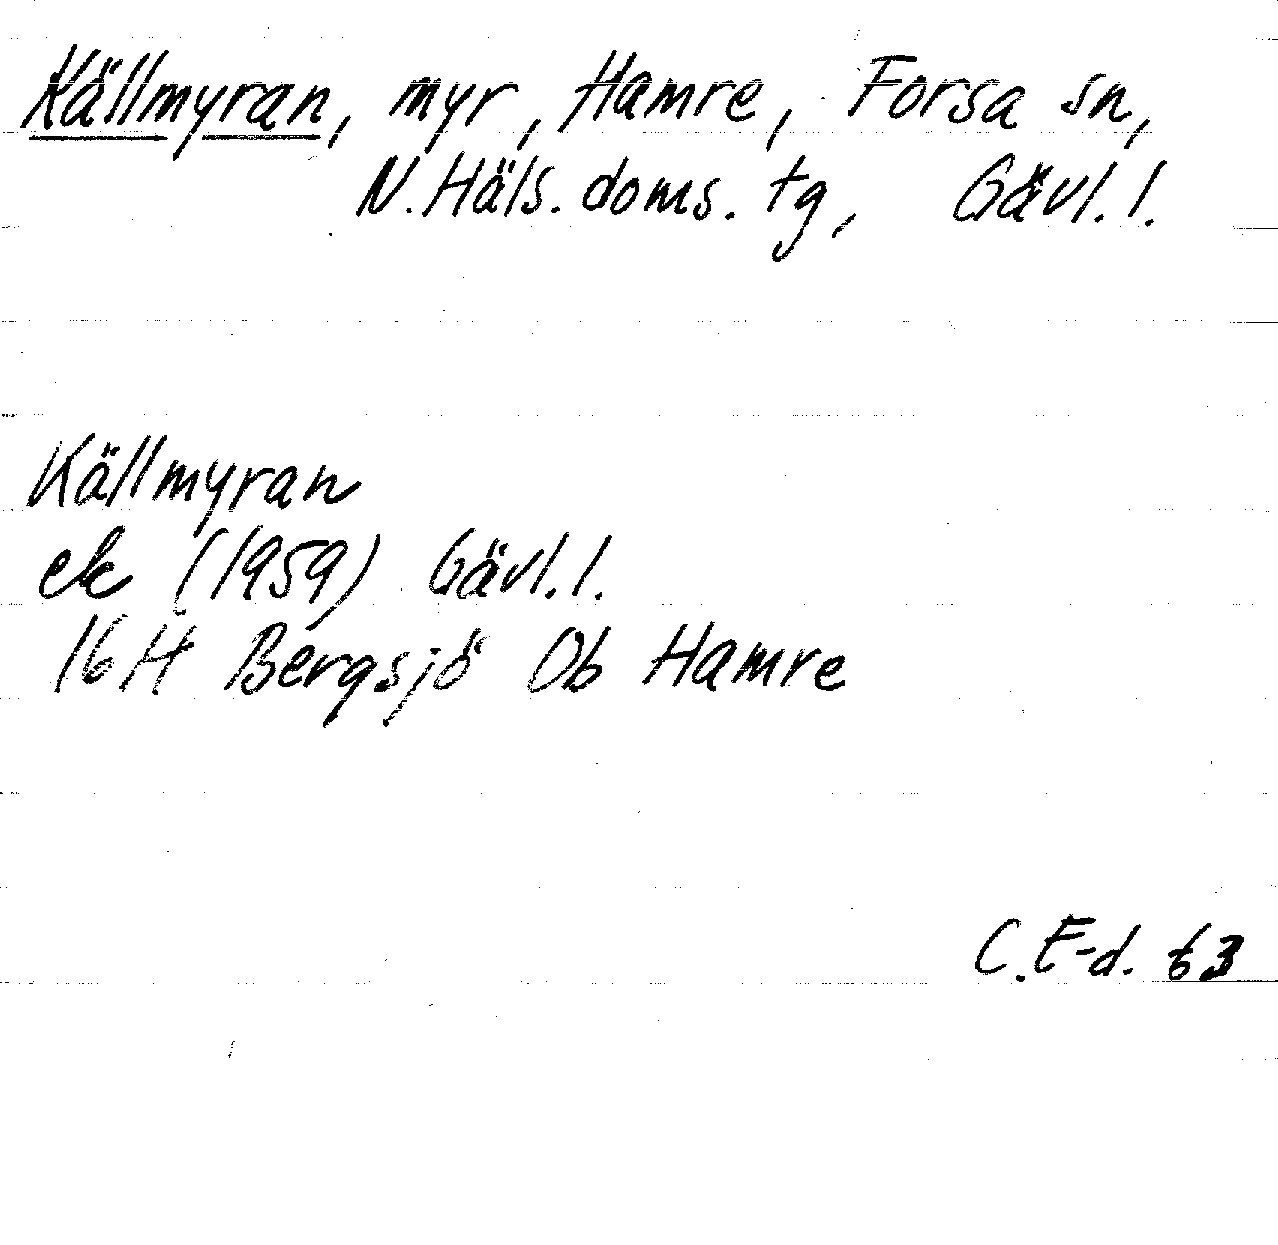 Källmyran, myr, Hamre, Forsa sn,
N. Häls. doms. tg, Gävl. l.
Källmyran
ek (1959) Gävl. l.
16H Bergsjö Ob Hamre
C. E-d. 63